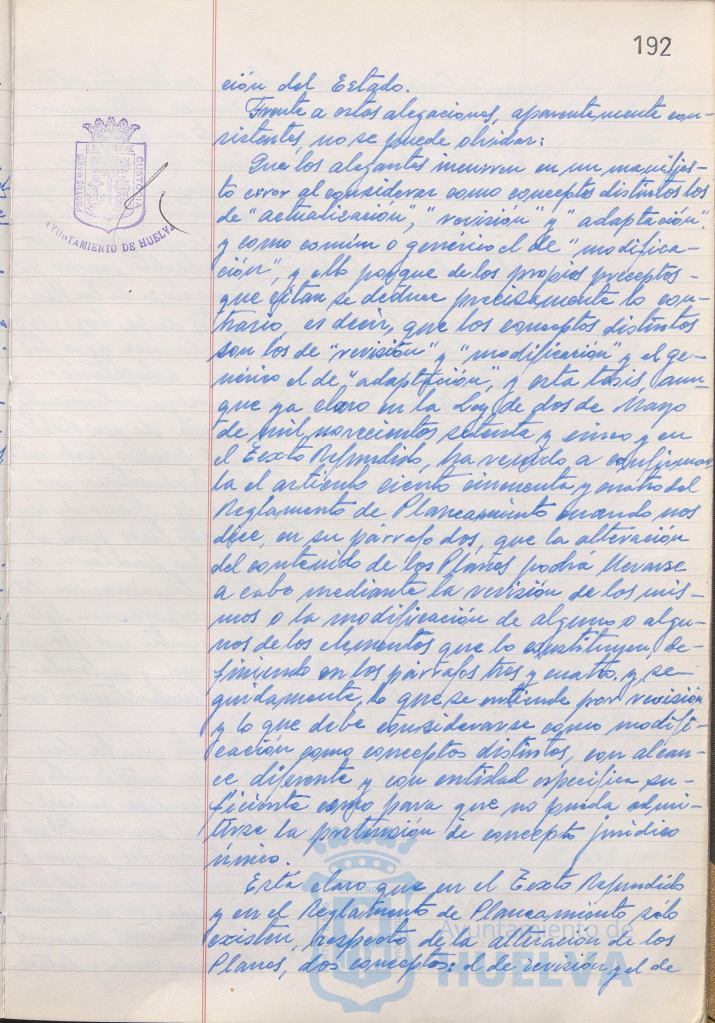 192
ción del Estado.
Frente a estas alegaciones, aparentemente con-
sistentes, no se puede olvidar:
Que los alegantes incurren en un manifies-
to error al considerar como conceptos distintos los
de "actualización", "revisión" y "adaptación",
y como común o genérico el de "modifica-
ción", y ello porque de los propios preceptos -
que citan se deduce precisamente lo con-
trario, es decir, que los conceptos distintos
son los de "revisión" y "modificación" y el ge-
nérico el de "adaptación", y esta tésis, aun-
que ya claro en la Ley de dos de Mayo
de mil novecientos setenta y cinco y en
el Texto Refundido, ha venido a confirmar
la el artículo ciento cincuenta y cuatro del
Reglamento de Planeamiento cuando nos
dice, en su párrafo dos, que la alteración
del contenido de los Planes podrá llevarse
a cabo mediante la revisión de los mis-
mos o la modificación de alguno o algu-
nos de los elementos que lo constituyen, de-
finiendo en los párrafos tres y cuatro, y se-
guidamente, lo que se entiende por revisión
y lo que debe considerarse como modifi-
cación como conceptos distintos, con alcan-
ce diferente y con entidad específica su-
ficiente como para que no pueda admi-
tirse la pretensión de concepto jurídico
único.
Está claro que en el Texto Refundido
y en el Reglamento de Planeamiento sólo
existen, respecto de la alteración de los
Planes, dos conceptos: el de revisión y el de
PORTUS MARIS
CUSTODIA
AYUNTAMIENTO DE HUELVA
Ayuntamiento de
HUELVA